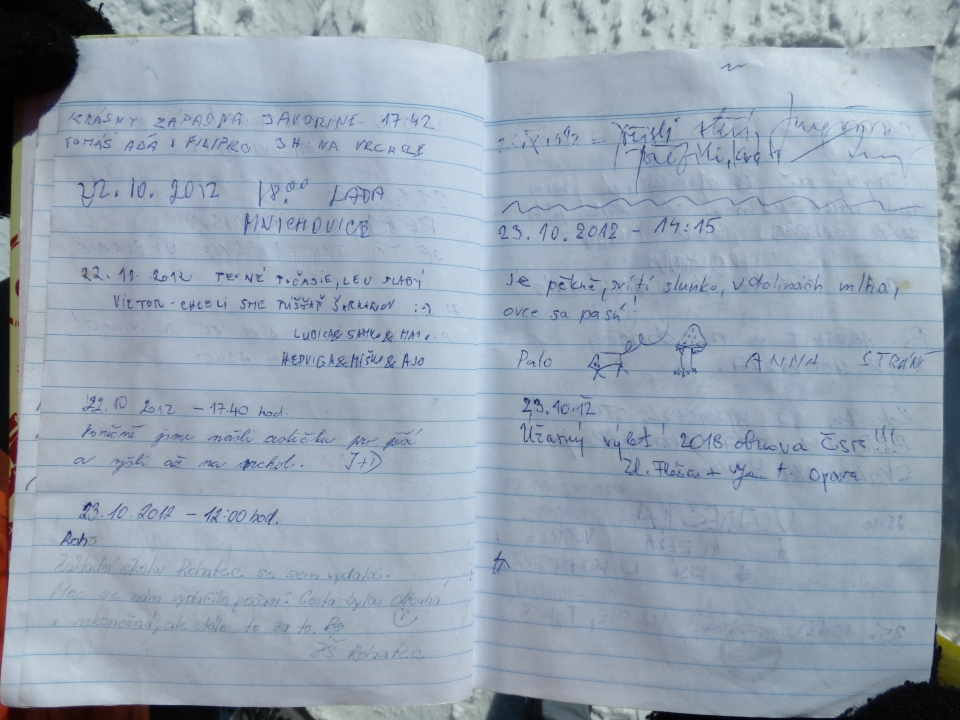 KRÁSNY ZÁPAD NA JAVORINE 17:42
TOMÁŠ ADA + FILIPKO JH NA VRCHOLE
22.10.2012 18.00 LADA
MNICHOVICE
22.10.2012 POČASIE, LEN SLABÝ
VIETOR - CHCELI SME PÚŠŤAŤ ŠARKANOV :-)
ĽUBICA & SAMKO &
HEDVIGA & MIŠKO & AJO
22.10 2012 - 17.40 hod.
Konečně jsme našli pro pěší
a vyšli až na vrchol. J+D
23.10.2012 - 12:00 hod.
Roh
Základní škola Rohatec se sem vydala.
Moc se nám vydařilo počasí. Cesta byla dlouhá
a nekonečná, ale stálo to za to.
ZŠ Rohatec
Přišli
23.10.2012 - 14:15
Je pěkně, svítí slunko, v dolinách mlha,
ovce sa pasú!
Palo ANNA STRÁNÍ
23.10.12
Úžasný výlet! 2018 obnova ČSR!!!
Zd. + Opava